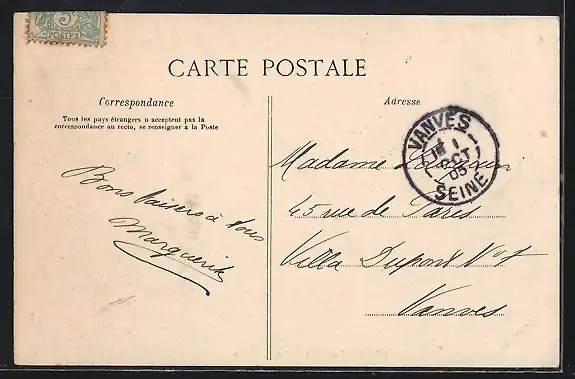 5
POSTES
CARTE POSTALE
Correspondance
Tous les pays étrangers n acceptent pas la
correspondance au recto, se renseigner à la Poste
Bons baisers à tous
Marguerite
Adresse
VANVES
1
OCT
05
SEINE
Madame
45 rue de Paris
Villa Dupont
Vanves